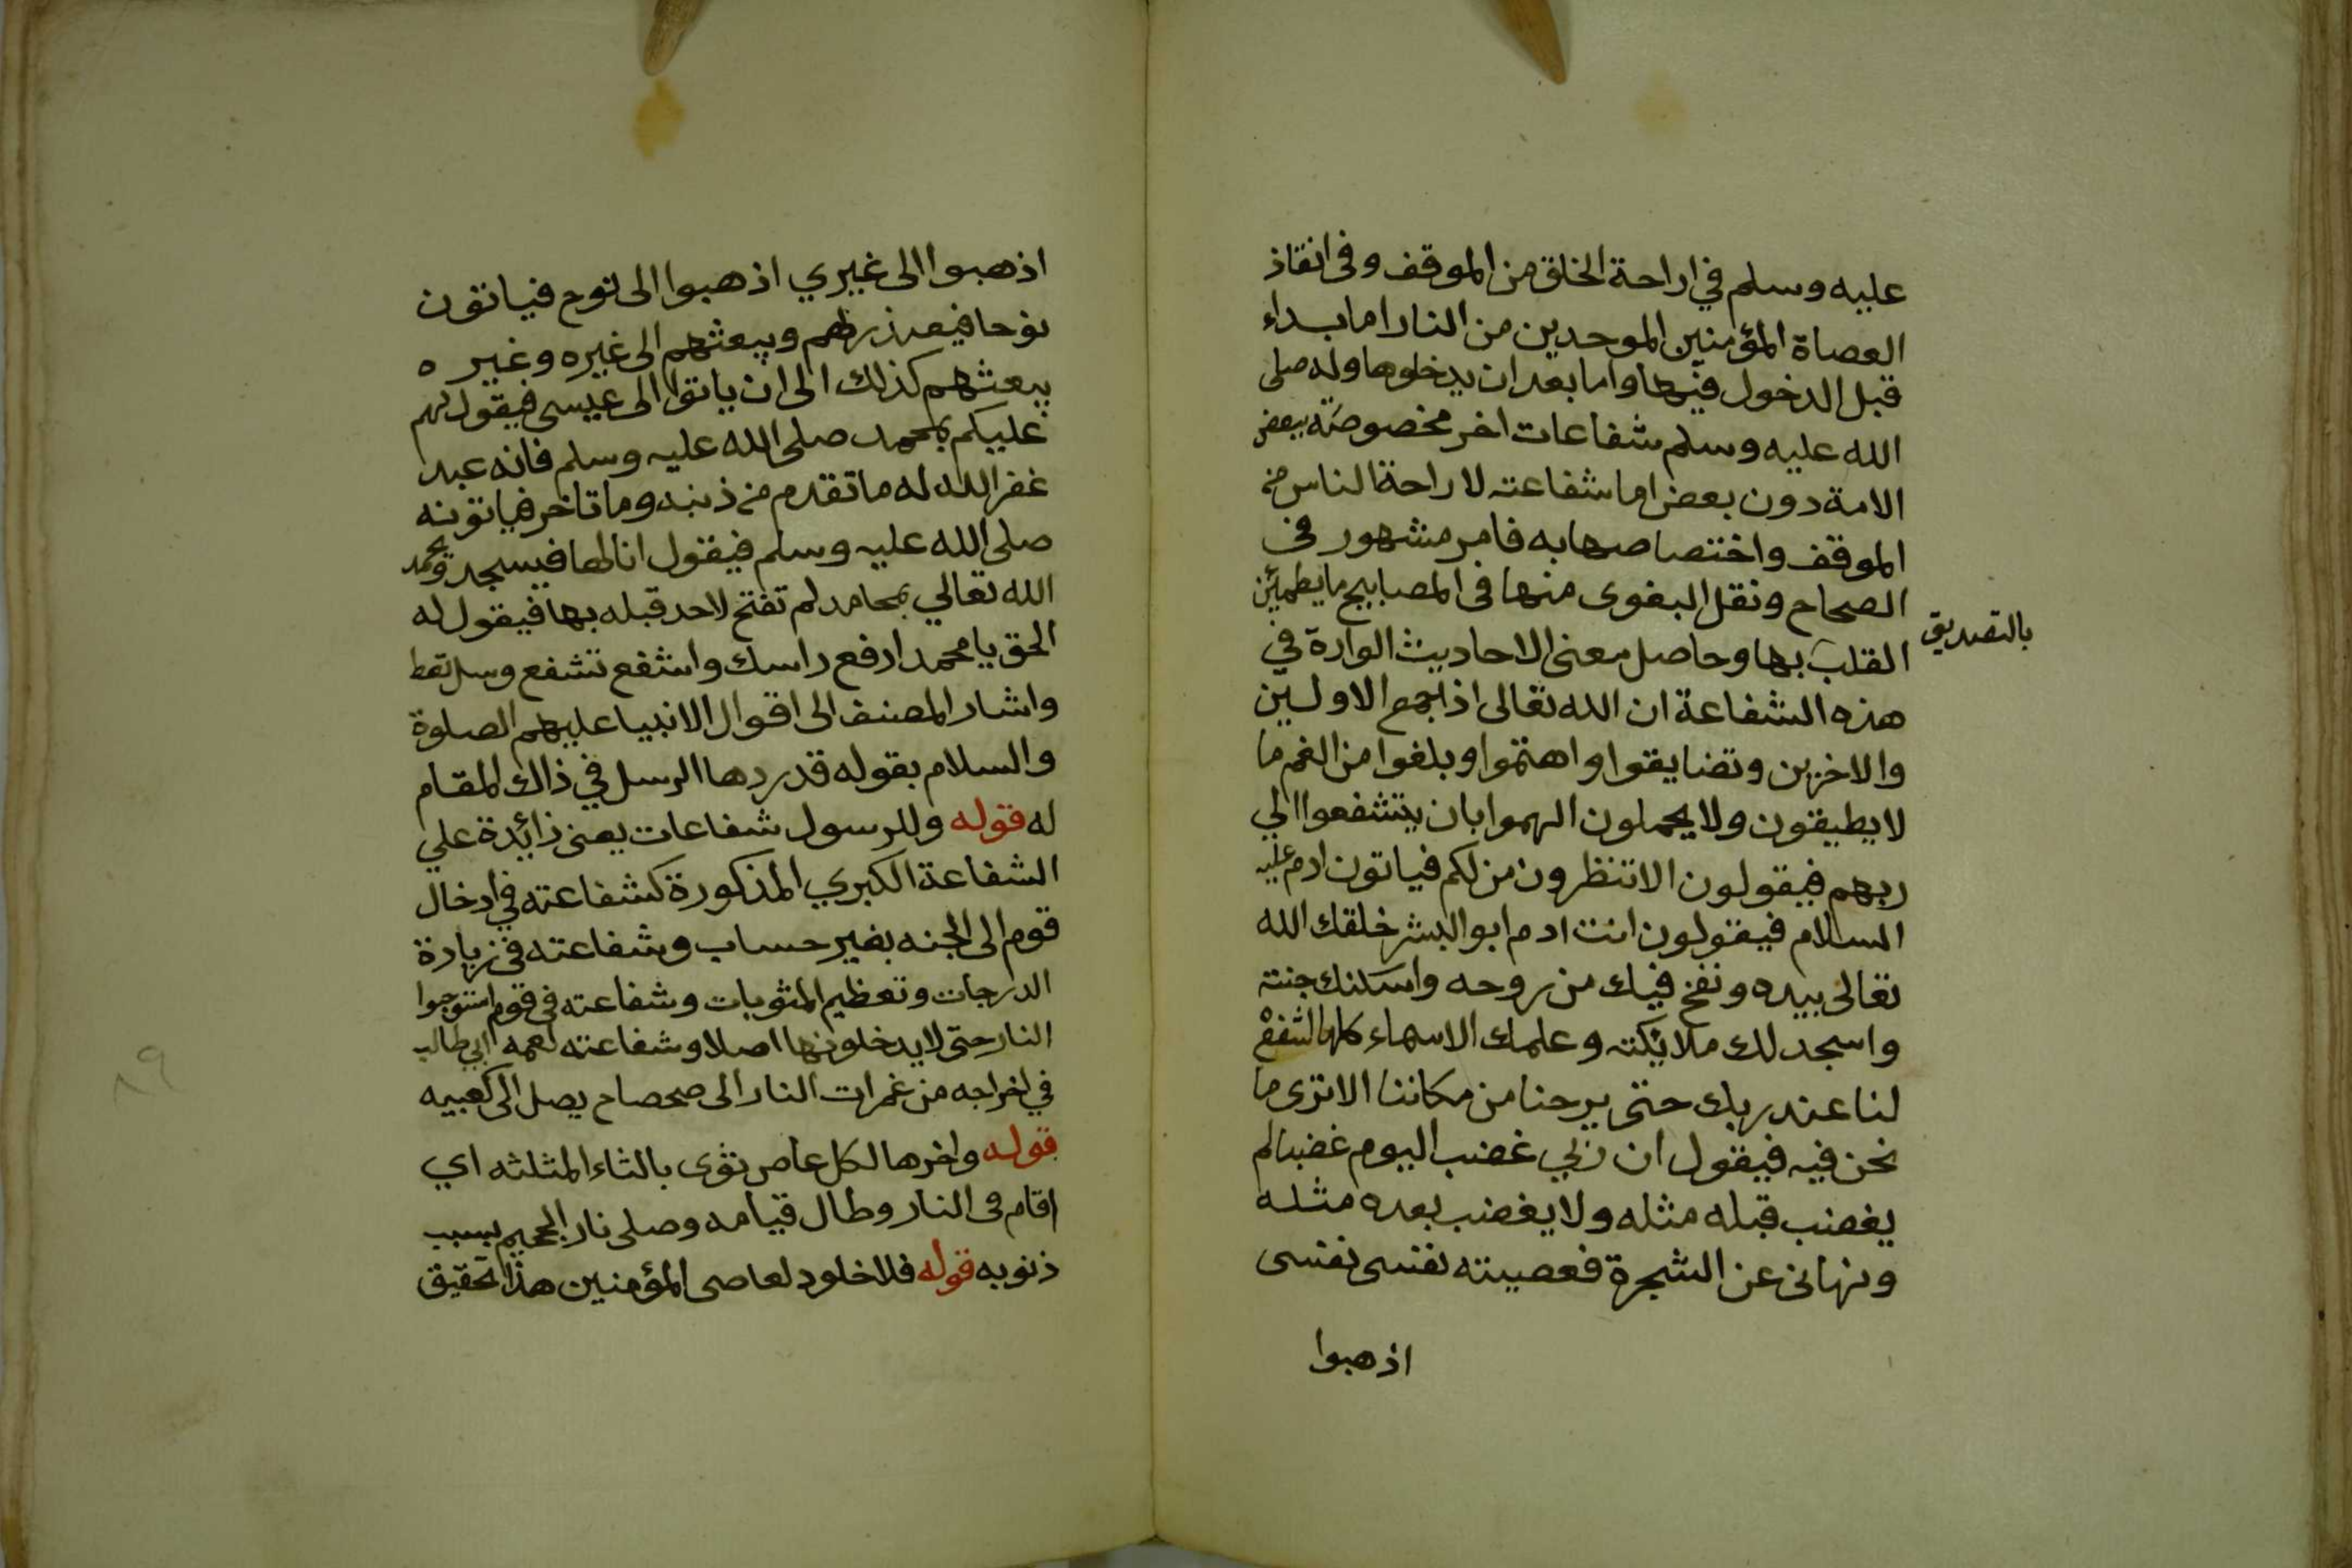 عليه وسلم في اراحة الخلق من الموقف وفى انقاذ
العصاة المؤمنين الموحدين من النار اما بداء
قبل الدخول فيها واما بعد ان يدخلوها وله صلى
الله عليه وسلم شفاعات اخر مخصوصة ببعض
الامة دون بعض اما شفاعته لاراحة الناس من
الموقف واختصاصها به فامر مشهور في
الصحاح ونقل البغوى منها فى المصابيح ما يطمئن
القلب بها وحاصل معنى الاحاديث الواردة في
بالتصديق
هذه الشفاعة ان الله تعالى اذا جمع الاولين
والاخرين وتضايقوا واهتموا وبلغوا من الغم ما
لا يطيقون ولا يحملون الهموا بان يتشفعوا الي
ربهم فيقولون الا تنظرون من لكم فياتون ادم عليه
السلام فيقولون انت ادم ابو البشر خلقك الله
تعالى بيده ونفخ فيك من روحه واسكنك جنته
واسجد لك ملائكته وعلمك الاسماء كلها اشفع
لنا عند ربك حتى يرحنا من مكاننا الا ترى ما
نحن فيه فيقول ان ربي غضب اليوم غضبا لم
يغضب قبله مثله ولا يغضب بعده مثله
ونهانى عن الشجرة فعصيته نفسى نفسى
اذهبوا
اذهبوا الى غيري اذهبوا الى نوح فياتون
نوحا فيعذرهم ويبعثهم الى غيره وغيره
يبعثهم كذلك الى ان ياتوا الى عيسى فيقول لهم
عليكم بمحمد صلى الله عليه وسلم فانه عبد
غفر الله له ما تقدم من ذنبه وما تاخر فياتونه
صلى الله عليه وسلم فيقول انا لها فيسجد ويحمد
الله تعالي بمحامد لم تفتح لاحد قبله بها فيقول له
الحق يا محمد ارفع راسك واشفع تشفع وسل تعط
واشار المصنف الى اقوال الانبيا عليهم الصلوة
والسلام بقوله قد ردها الرسل في ذاك المقام
له قوله وللرسول شفاعات يعنى زائدة علي
الشفاعة الكبري المذكورة كشفاعته في ادخال
قوم الى الجنه بغير حساب وشفاعته فى زيادة
الدرجات وتعظيم المثوبات وشفاعته فى قوم استوجبوا
النار حتى لا يدخلونها اصلا وشفاعته لعمه ابي طالب
في اخراجه من غمرات النار الى صحصاح يصل الى كعبيه
قوله واخرها لكل عاص ثوى بالثاء المثلثه اي
اقام فى النار وطال قيامه وصلى نار الجحيم بسبب
ذنوبه قوله فلا خلود لعاصى المؤمنين هذا تحقيق
٨٩